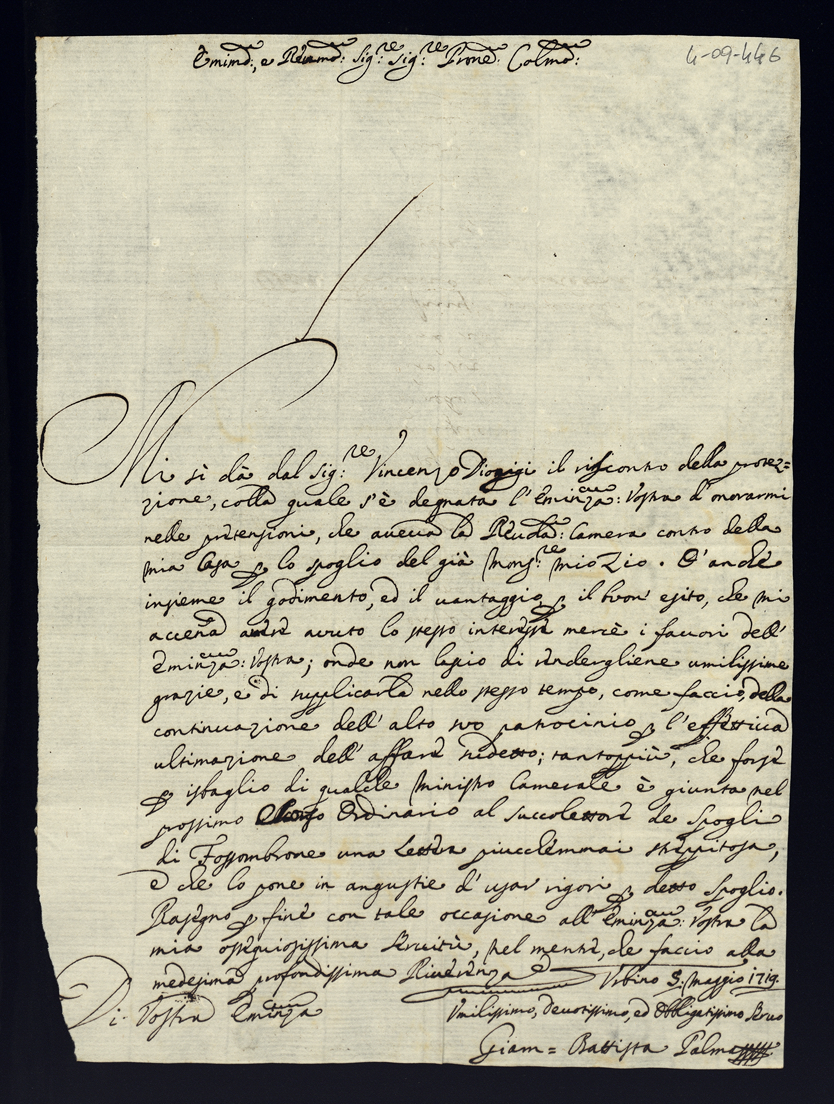 4-09-446
Emin:mo, e Reu:mo Sig:re Sig:re Prone Colmo:
Mi si dà dal Sig:re Vincenzo Dionigi il riscontro della protez=
zione, colla quale s'è degnata l'Eminza: Vostra d'onorarmi
nelle pretensioni, che aueua la Reuda: Camera contro della
mia Casa p lo spoglio del già Mons:re mio Zio. E' anche
insieme il godimento, ed il uantaggio p il buon' esito, che mi
accena auere auuto lo stesso interesse mercè i fauori dell'
Eminza: Vostra; onde non lascio di rendergliene umilissime
grazie, e di supplicarla nello stesso tempo, come faccio, della
continuazione dell' alto suo patrocinio p l'effettiua
ultimazione dell' affare sudetto; tantoppiù, che forse
p isbaglio di qualche Ministro Camerale è giunta nel
prossimo Ordinario al succolettore de spogli
di Fossombrone una Lettera piucchemmai strepitosa,
e che lo pone in angustie d' usar rigori p detto spoglio.
Rasegno p fine con tale occasione all' Eminza: Vostra la
mia ossequiosissima Seruitù, nel mentre, che faccio alla
medesima profondissima Riuerenza
Vrbino 3: Maggio 1719.
Di Vostra Eminza
Vmilissimo, Deuotissimo, ed Obbligatissimo Seruo
Giam= Battista Palma